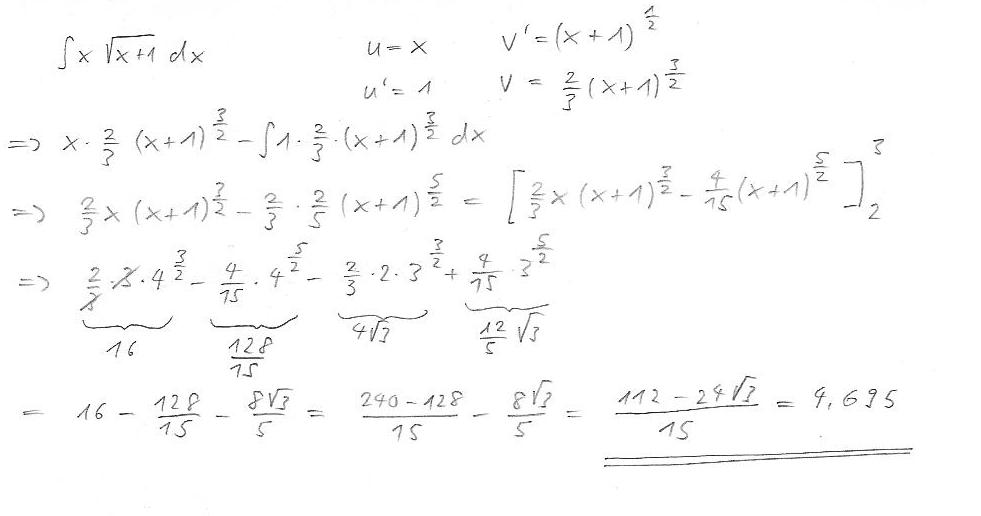 ∫x √(x+1) dx    u = x    v' = (x+1)^(1/2)
u' = 1    v = 2/3 (x+1)^(3/2)
=> x · 2/3 (x+1)^(3/2) - ∫1 · 2/3 · (x+1)^(3/2) dx
=> 2/3 x (x+1)^(3/2) - 2/3 · 2/5 (x+1)^(5/2) = [ 2/3 x (x+1)^(3/2) - 4/15 (x+1)^(5/2) ]_2^3
=> 2/3 · 3 · 4^(3/2) - 4/15 · 4^(5/2) - 2/3 · 2 · 3^(3/2) + 4/15 · 3^(5/2)
16    128/15    4√3    12/5 √3
= 16 - 128/15 - 8√3/5 = (240-128)/15 - 8√3/5 = (112-24√3)/15 = 4,695